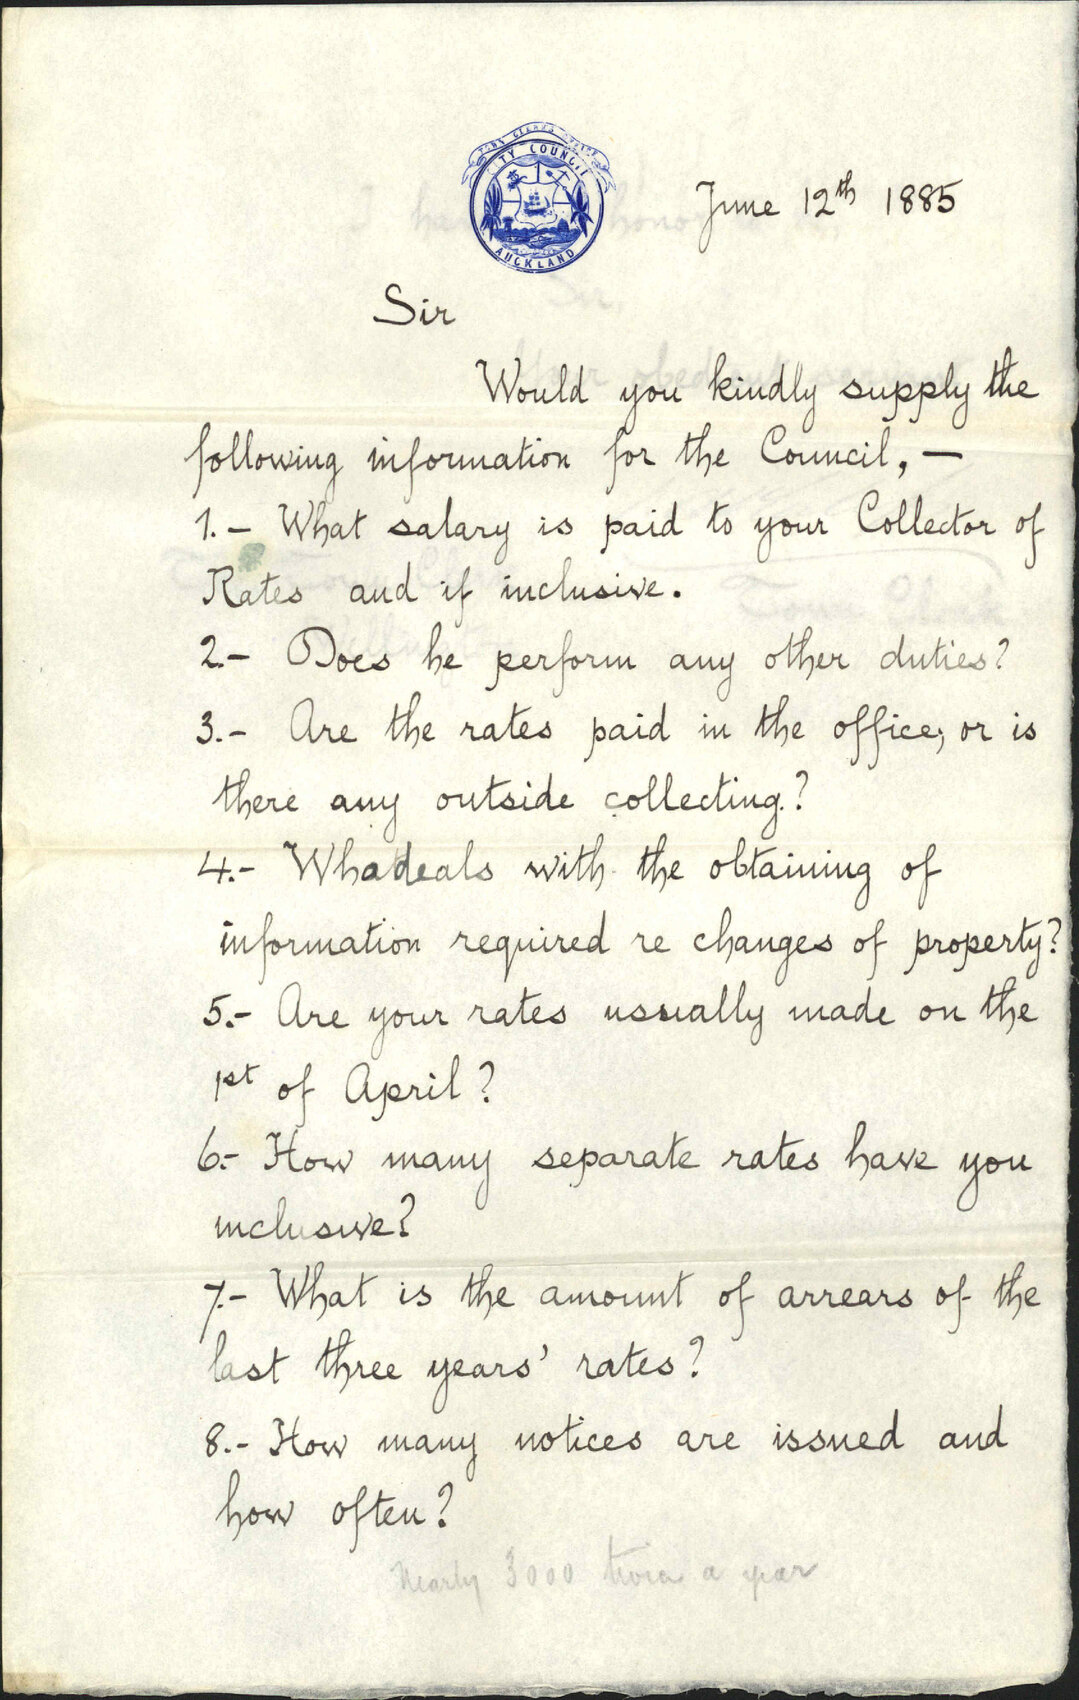 TOWN CLERK'S OFFICE
CITY COUNCIL
AUCKLAND
June 12th 1885
Sir
Would you kindly supply the
following information for the Council, —
1. – What salary is paid to your Collector of
Rates and if inclusive.
2. – Does he perform any other duties?
3. – Are the rates paid in the office, or is
there any outside collecting?
4. – Who deals with the obtaining of
information required re changes of property?
5. – Are your rates usually made on the
1st of April?
6. – How many separate rates have you
inclusive?
7. – What is the amount of arrears of the
last three years' rates?
8. – How many notices are issued and
how often?
Nearly 3000 twice a year